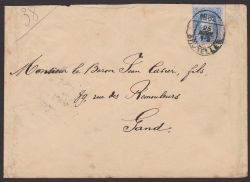 38
Monsieur le Baron Jean Casier, fils,
89, rue des Remouleurs
Gand.
BRUXELLES